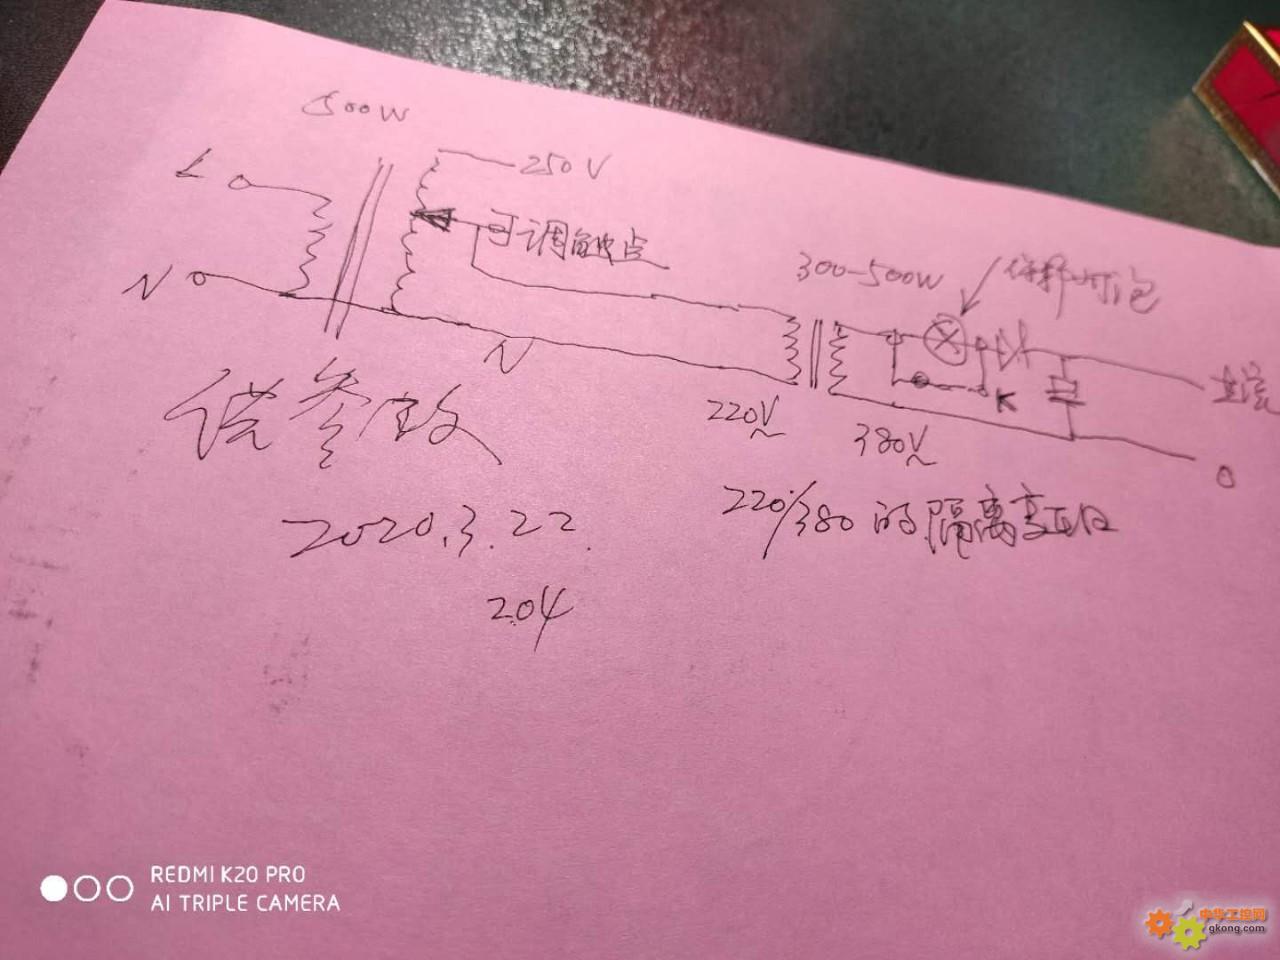 500W
L
250V
可调触点
N
300-500W
保护灯泡
N
K
直流
220V
380V
0
供参改
220/380的隔离变压
2020.3.22.
204
REDMI K20 PRO
AI TRIPLE CAMERA
中华工控网
gkong.com